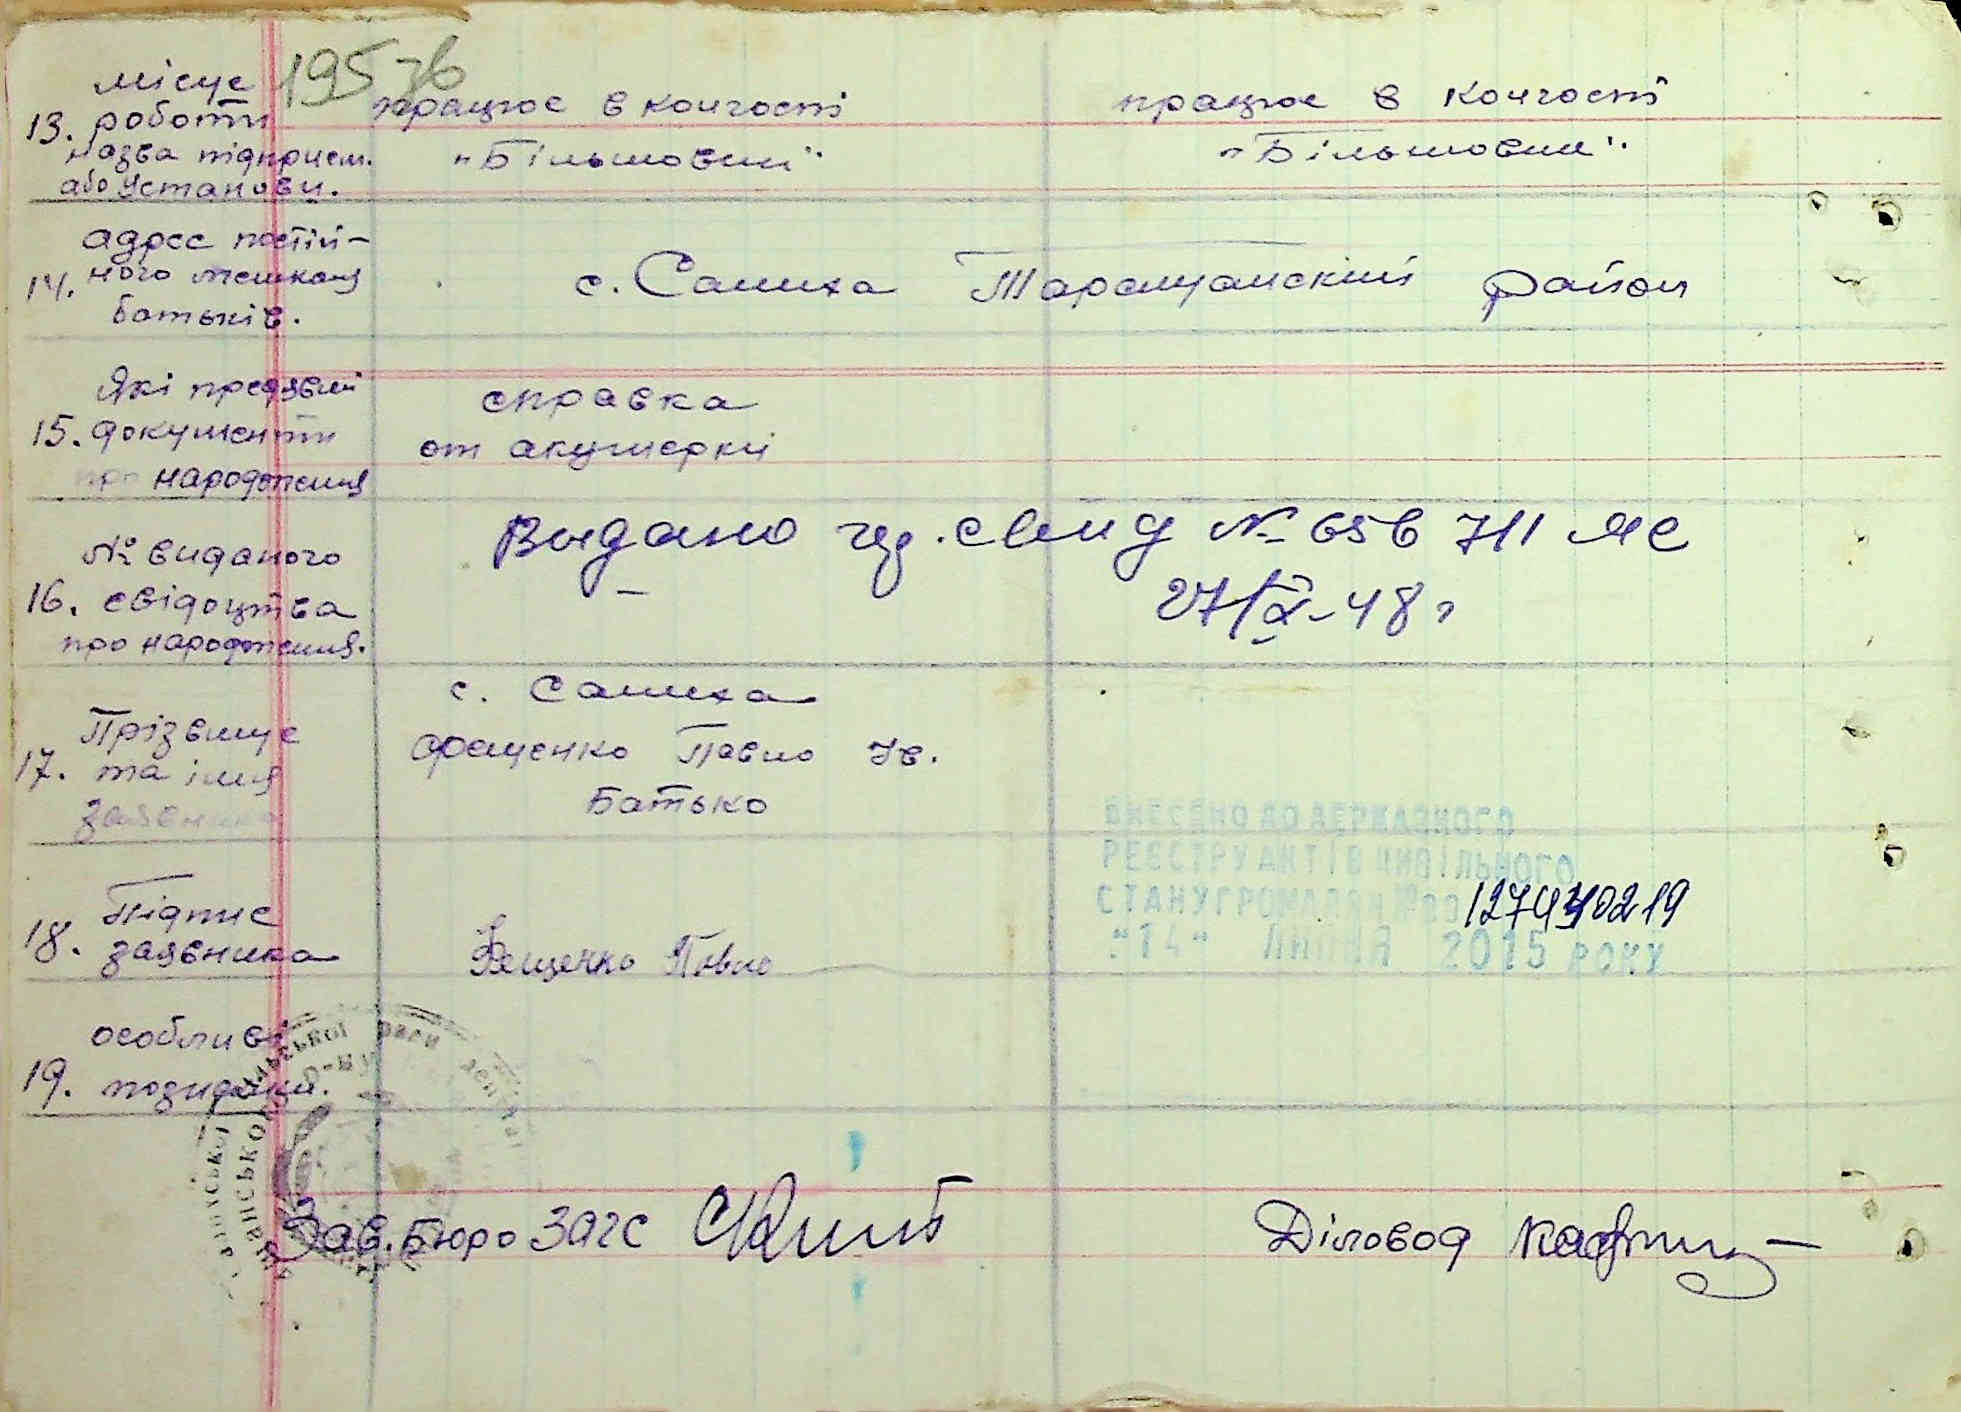 195 зв
місце
13. роботи
назва підприєм.
або установи.
працює в колгоспі
"Більшовик"
працює в колгоспі
"Більшовик"
адрес постій-
14. ного мешкан
батьків.
с. Салиха Таращанский район
Які предявил
15. документи
про народження
справка
от акушерки
№ виданого
16. свідоцтва
про народження.
Видано свид № 656711 ЯС
27/IX-48 г
Прізвище
17. та імя
заявника
с. Салиха
Фещенко Павло Ів.
Батько
Підпис
18. заявника
Фещенко Павло
ВНЕСЕНО ДО ДЕРЖАВНОГО
РЕЄСТРУ АКТІВ ЦИВІЛЬНОГО
СТАНУ ГРОМАДЯН №00127440219
"14" ЛИПНЯ 2015 РОКУ
особливі
19. позначки.
Зав. Бюро ЗАГС
Діловод